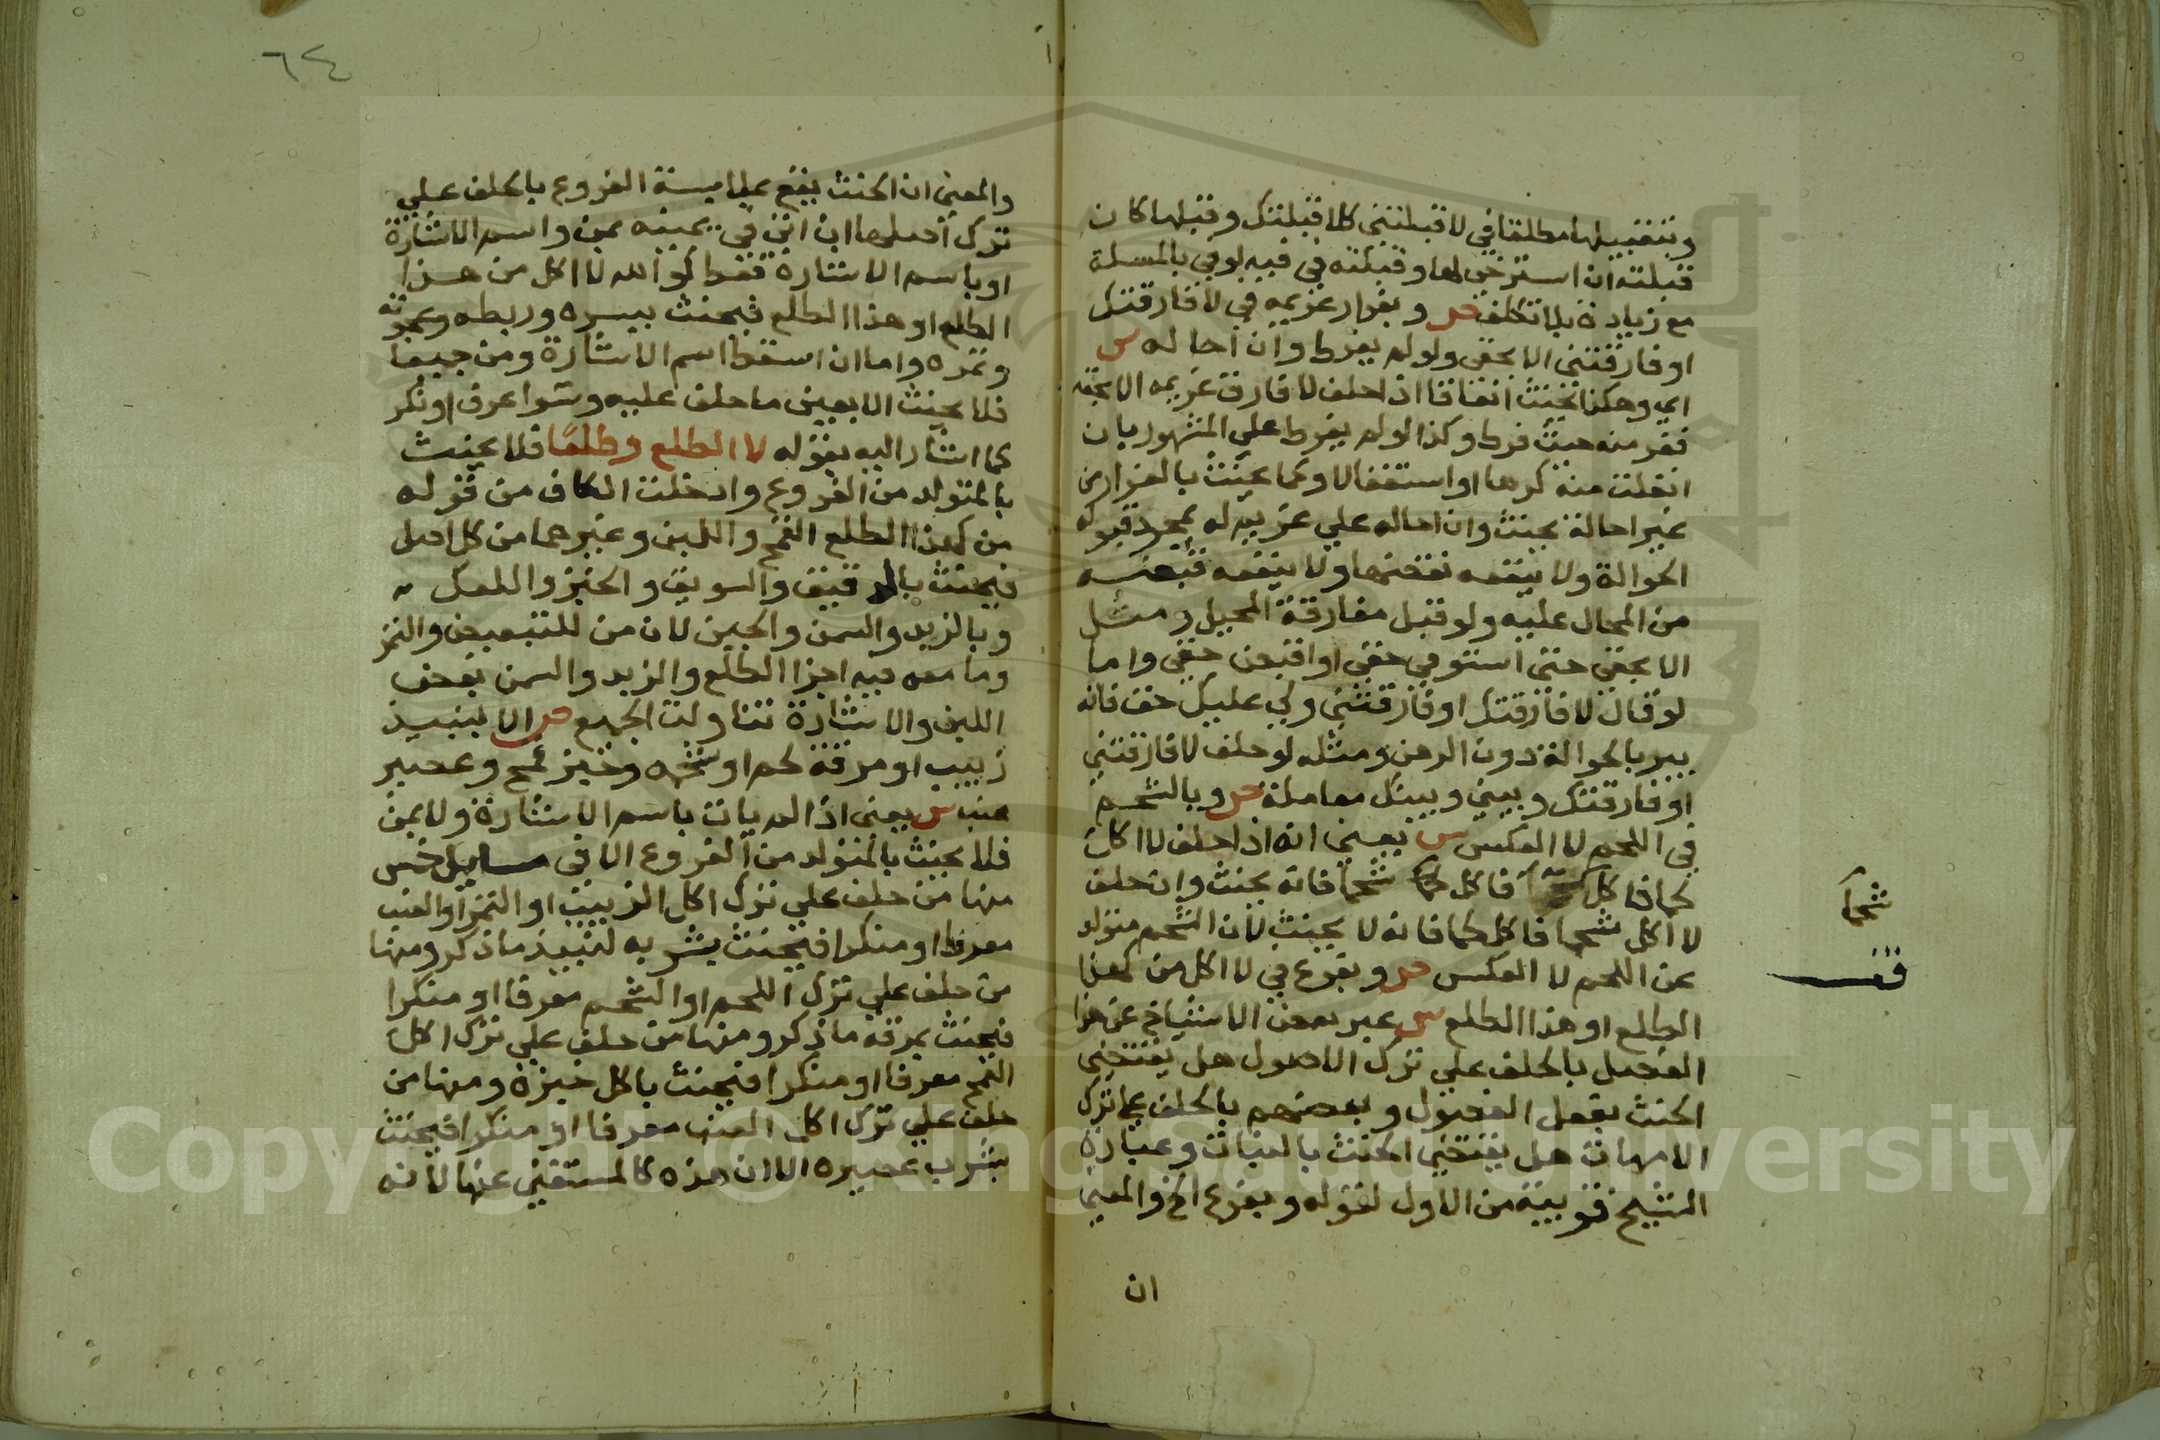 وبتقبيلها مطلقا في لا قبلتني كلا قبلتك وقبلها كان
قبلته ان استرخى لها وقبلته في فيه لو في بالمسلة
مع زيادة بلا تكلف ص وبفرار غريمه في لا فارقتك
او فارقتني الا بحقي ولو لم يفرط وان احاله س
اي وهكذا يحنث اتفاقا اذا حلف لا فارق غريمه الا بحقه
ففر منه حيث فرط وكذا لو لم يفرط على المشهور بان
انفلت منه كرها او استغفالا وكما يحنث بالفرار من
غير احالة يحنث وان احاله على غريم له بمجرد قبوله
الحوالة ولا ينفعه نقضها ولا ينفعه قبضه
من المحال عليه ولو قبل مفارقة المحيل ومثل
الا بحقي حتى استوفي حقي او اقبض حقي واما
لو قال لا فارقتك او فارقتني ولي عليك حق فانه
يبر بالحوالة دون الرهن ومثله لو حلف لا فارقتني
او فارقتك وبيني وبينك معاملة ص وبالشحم
في اللحم لا العكس س يعني انه اذا حلف لا اكل
لحما فاكل شحما فانه يحنث وان حلف
لا اكل شحما فاكل لحما فانه لا يحنث لان الشحم متولد
عن اللحم لا العكس ص وبفرع في لا اكل من كهذا
الطلع او هذا الطلع س عبر بعض الاشياخ عن هذا
الفصل بالحلف على ترك الاصول هل يقتضي
الحنث بفعل الفصول وبعضهم بالحلف على ترك
الامهات هل يقتضي الحنث بالبنات وعبارة
الشيخ قريبة من الاول لقوله وبفرع الخ والمعنى
ان
شحما
قف
٦٤
والمعنى ان الحنث يقع بملابسة الفروع بالحلف على
ترك اصلها ان اتى في يمينه بمن واسم الاشارة
او باسم الاشارة فقط كوالله لا اكل من هذا
الطلع او هذا الطلع فيحنث ببسره ورطبه وعجوته
وتمره واما ان اسقط اسم الاشارة ومن جميعا
فلا يحنث الا بعين ما حلف عليه وسوا عرف او نكر
كما اشار اليه بقوله لا الطلع وطلعا فلا يحنث
بالمتولد من الفروع وادخلت الكاف من قوله
من كهذا الطلع القمح واللبن وغيرهما من كل اصل
فيحنث بالدقيق والسويق والخبز والكعك
وبالزبد والسمن والجبن لان من للتبعيض والتمر
وما معه فيه اجزا الطلع والزبد والسمن بعض
اللبن والاشارة تناولت الجميع ص الا لنبيذ
زبيب او مرقة لحم او شحمه وخبز قمح وعصير
عنب س يعني اذا لم يات باسم الاشارة ولا بمن
فلا يحنث بالمتولد من الفروع الا في مسايل خمس
منها من حلف على ترك اكل الزبيب او التمر او العنب
معرفا او منكرا فيحنث بشربه لنبيذ ما ذكر ومنها
من حلف على ترك اللحم او الشحم معرفا او منكرا
فيحنث بمرقة ما ذكر ومنها من حلف على ترك اكل
القمح معرفا او منكرا فيحنث باكل خبزه ومنها من
حلف على ترك اكل العنب معرفا او منكرا فيحنث
بشرب عصيره الا ان هذه كالمستغني عنها لانه
Copyright © King Saud University